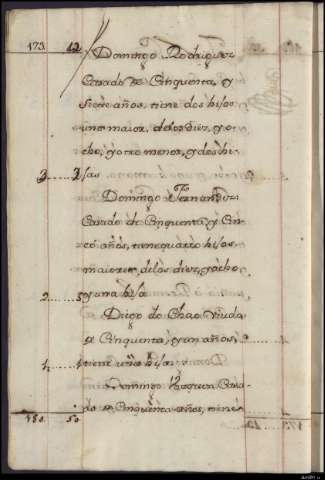 173 42
Domingo Rodriguez
Casado de Cinquenta, y
Siete años, tiene dos hijos
uno maior, de los diez, y o
cho, y otro menor, y dos hi
3 3 jas
Domingo Fernandez
Casado de Cinquenta, y Cin
co años, tiene quatro hijos
maiores, de los diez, y ocho
2 5 y una hija
Diego do Chao Viudo
de Cinquenta, y un años,
1 tiene una hija
Domingo Casa
do de Cinquenta años, tiene
50